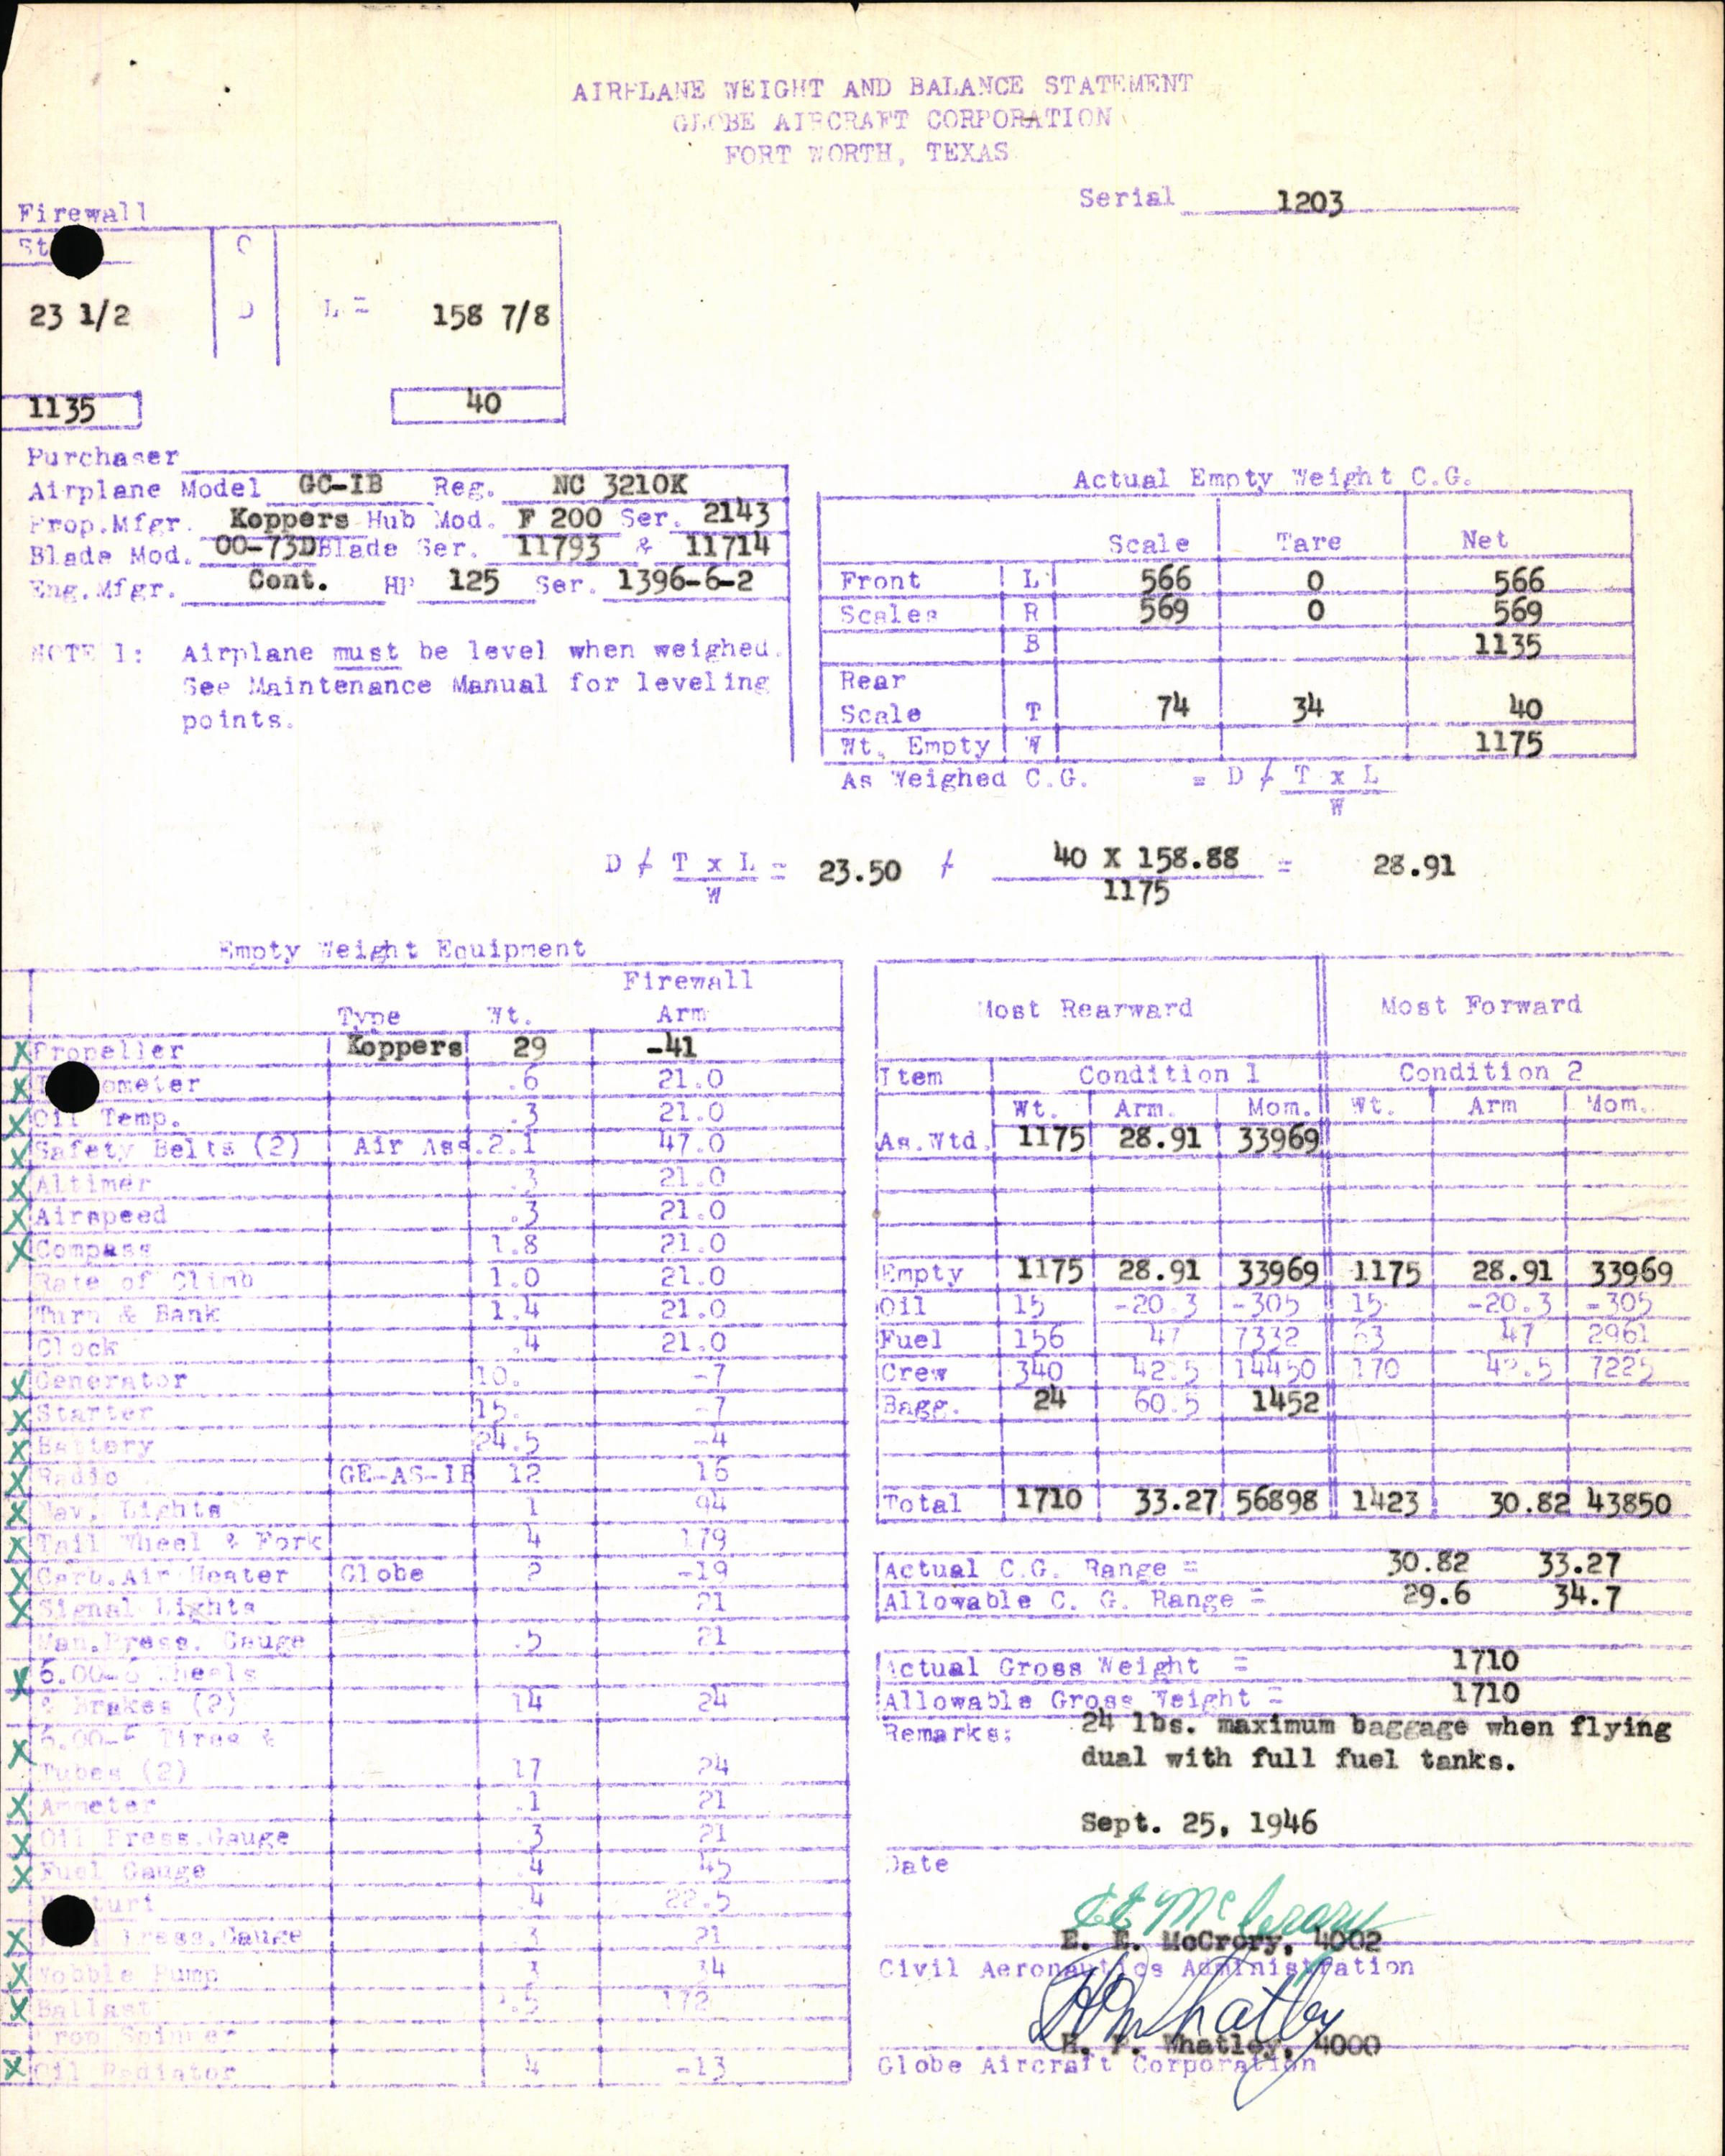 AIRPLANE WEIGHT AND BALANCE STATEMENT
GLOBE AIRCRAFT CORPORATION
FORT WORTH, TEXAS
Serial 1203
Firewall
St
C
23 1/2 D L = 158 7/8
1135 40
Purchaser
Airplane Model GC-IB Reg. NC 3210K
Prop.Mfgr. Koppers Hub Mod. F 200 Ser. 2143
Blade Mod. 00-73D Blade Ser. 11793 & 11714
Eng.Mfgr. Cont. HP 125 Ser. 1396-6-2
NOTE 1: Airplane must be level when weighed.
See Maintenance Manual for leveling
points.
Actual Empty Weight C.G.
Scale Tare Net
Front L 566 0 566
Scales R 569 0 569
B 1135
Rear
Scale T 74 34 40
Wt. Empty W 1175
As Weighed C.G. = D ≠ T x L
W
D ≠ T x L = 23.50 ≠ 40 X 158.88 = 28.91
W 1175
Empty Weight Equipment
Firewall
Type Wt. Arm
X Propeller Koppers 29 -41
X ometer .6 21.0
X Oil Temp. .3 21.0
X Safety Belts (2) Air Ass. 2.1 47.0
X Altimer .3 21.0
X Airspeed .3 21.0
X Compass 1.8 21.0
Rate of Climb 1.0 21.0
Turn & Bank 1.4 21.0
Clock .4 21.0
X Generator 10. -7
X Starter 15. -7
X Battery 24.5 -4
X Radio GE-AS-1B 12 16
X Nav. Lights 1 94
X Tail Wheel & Fork 4 179
X Carb.Air Heater Globe 2 -19
X Signal Lights 21
Man.Press. Gauge .5 21
X 6.00-6 Wheels
& Brakes (2) 14 24
X 6.00-6 Tires &
Tubes (2) 17 24
X Ammeter .1 21
X Oil Press.Gauge .3 21
X Fuel Gauge .4 45
turi .4 22.5
X Press.Gauge .3 21
X Wobble Pump 3 34
X Ballast 172
Prop Spinner
X Oil Radiator 4 -13
Most Rearward Most Forward
Item Condition 1 Condition 2
Wt. Arm. Mom. Wt. Arm Mom.
As.Wtd. 1175 28.91 33969
Empty 1175 28.91 33969 1175 28.91 33969
Oil 15 -20.3 -305 15 -20.3 -305
Fuel 156 47 7332 63 47 2961
Crew 340 42.5 14450 170 42.5 7225
Bagg. 24 60.5 1452
Total 1710 33.27 56898 1423 30.82 43850
Actual C.G. Range = 30.82 33.27
Allowable C. G. Range = 29.6 34.7
Actual Gross Weight = 1710
Allowable Gross Weight = 1710
Remarks: 24 lbs. maximum baggage when flying
dual with full fuel tanks.
Sept. 25, 1946
Date
EE McCrory
E. E. McCrory, 4002
Civil Aeronautics Administration
HP Whatley
H. P. Whatley, 4000
Globe Aircraft Corporation